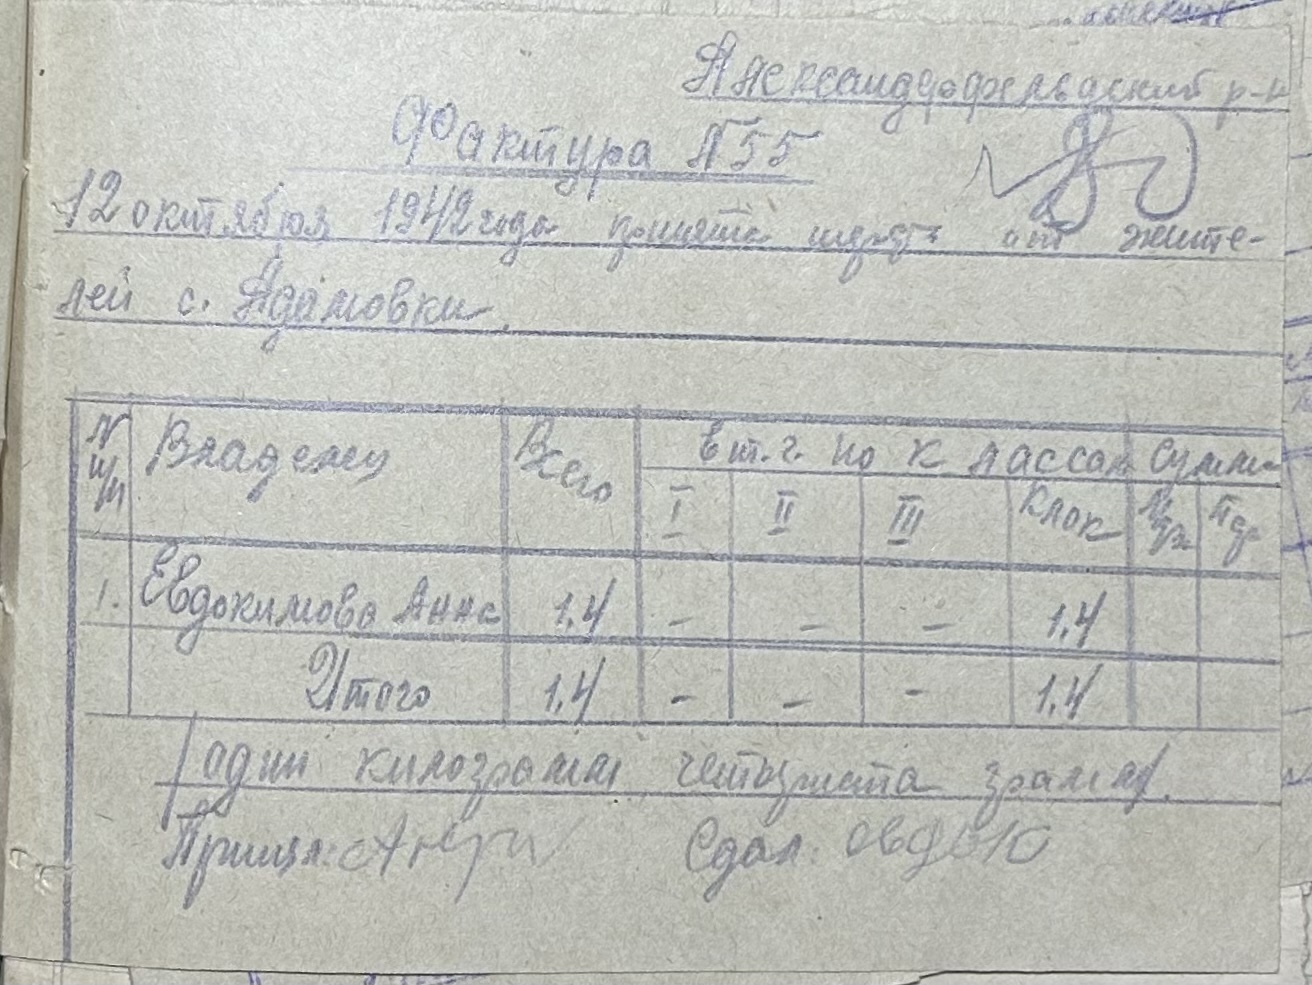 Александрфельдский р-н
Фактура №55
12 октября 1942 года принята шерсть от жите-
лей с. Адамовки.
N п/п Владелец Всего в т.ч. по классам Сумма
I II III Клок
1. Евдокимова Анна 1.4 - - - 1.4
Итого 1.4 - - - 1.4
/один килограмм четыреста грамм/.
Принял: Сдал: Овдок